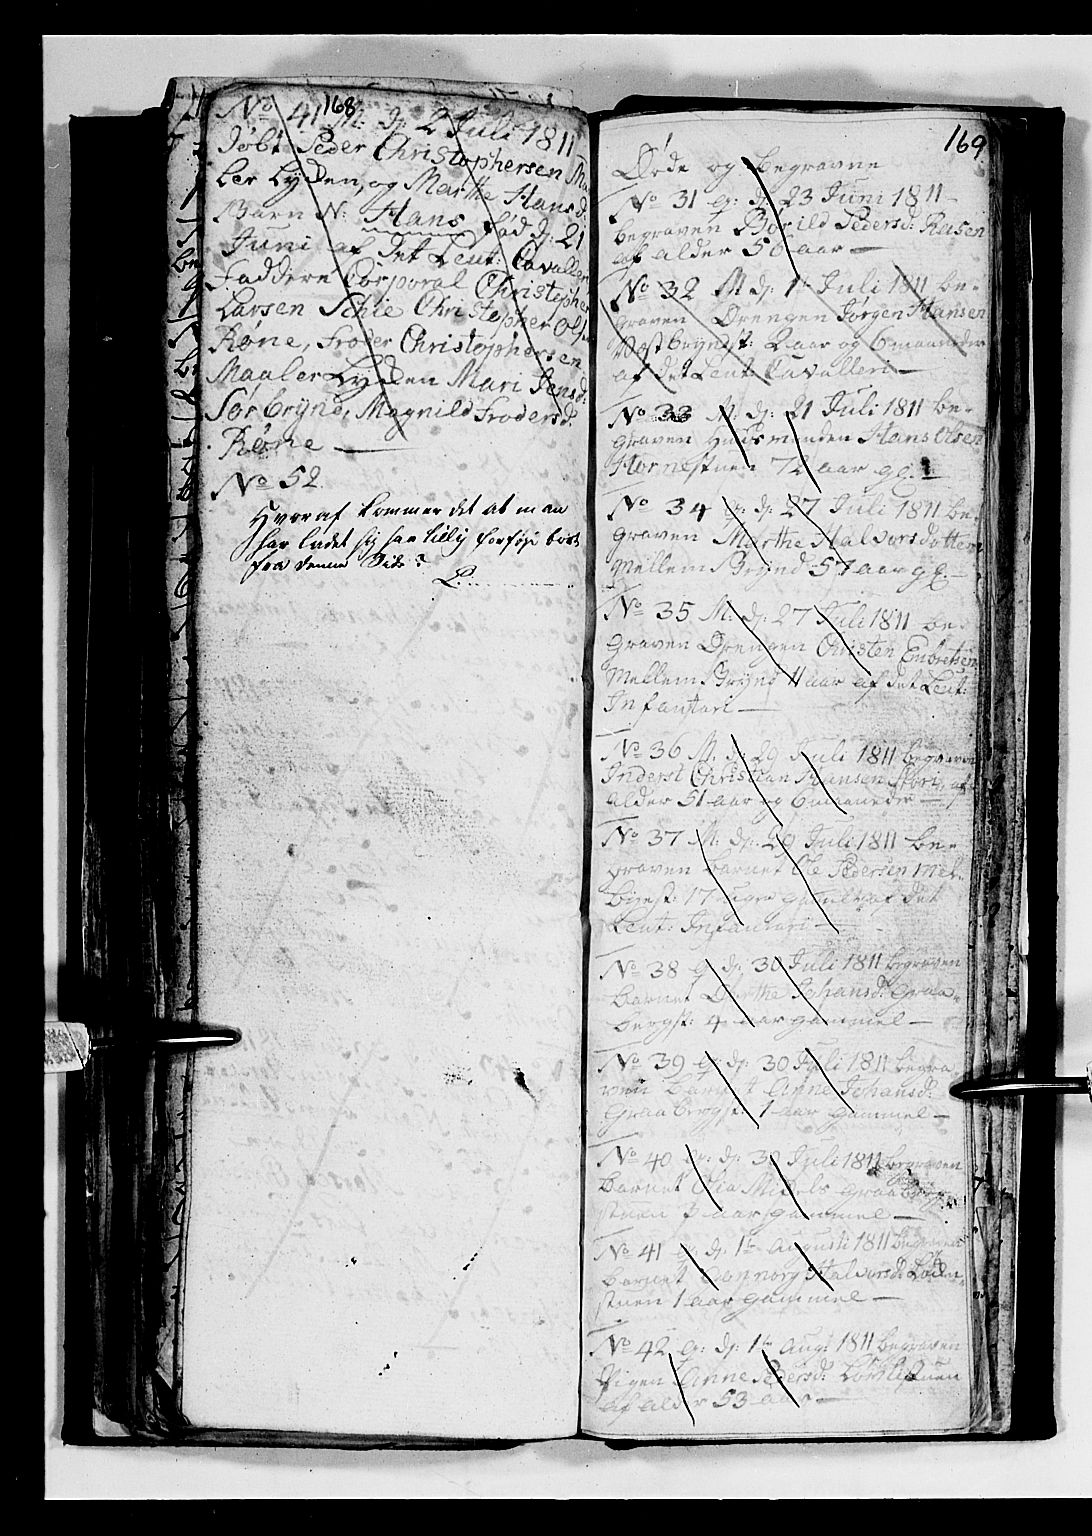 168
No 41 M: dj 2 Juli 1811
Døbt Peder Christophersen Maa
ler Lyden, og Marthe Hansd:
Barn N: Hans fød dj. 21
Juni af det Leut: Cavalleri
Faddere Corporal Christopher
Larsen Schie Christopher Ols:
Røne, Froder Christophersen
Maaler Lyden Mari Jensd:
Sørbrynd, Magnild Frodersd:
Røne —
No 52
Hvoraf kommer det at man
har ladet sig saa tillig forføje bort
fra denne Side?
169
Døde og Begravne
No 31 dj. 23 Juni 1811 -
begraven Borild Pedersd:
af alder 56 aar —
No 32 M. dj. 1te Juli 1811 be-
graven Drengen Jørgen Hansen
2 aar og 6 maaneder
af det Leut: Cavalleri —
No 33 M. dj. 21 Juli 1811 be-
graven Huusmanden Hans Olsen
Hornestuen 72 aar gl: —
No 34 dj. 27 Juli 1811 be-
graven Marthe Halvorsdotter
Mellem Brynd 57 aar gl: —
No 35 M: dj. 27 Juli 1811 be-
graven Drengen Christen Embretsen
Mellem Brynd 11 aar af det Leut:
Infanteri —
No 36 M. dj. 29 Juli 1811 begraven
Inderst Christian Hansen af
alder 51 aar og 6 maaneder —
No 37 M. dj. 29 Juli 1811 be-
graven barnet Ole Pedersen
17 uger gammel af det
Leut: Infanteri —
No 38 dj. 30 Juli 1811 begraven
barnet Dorthe Johansd: Graa-
bergst: 4 aar gammel —
No 39 dj. 30 Juli 1811 begra-
ven barnet Anne Johansd:
Graabergst: 1 aar gammel —
No 40 dj. 30 Juli 1811 begraven
barnet Olia Graaberg
stuen aar gammel —
No 41 dj. 1te Augusti 1811 begraven
barnet Halvorsd:
stuen 1 aar gammel —
No 42 dj. 1te Aug: 1811 begraven
Pigen Anne Pedersd:
af alder 53 aar —